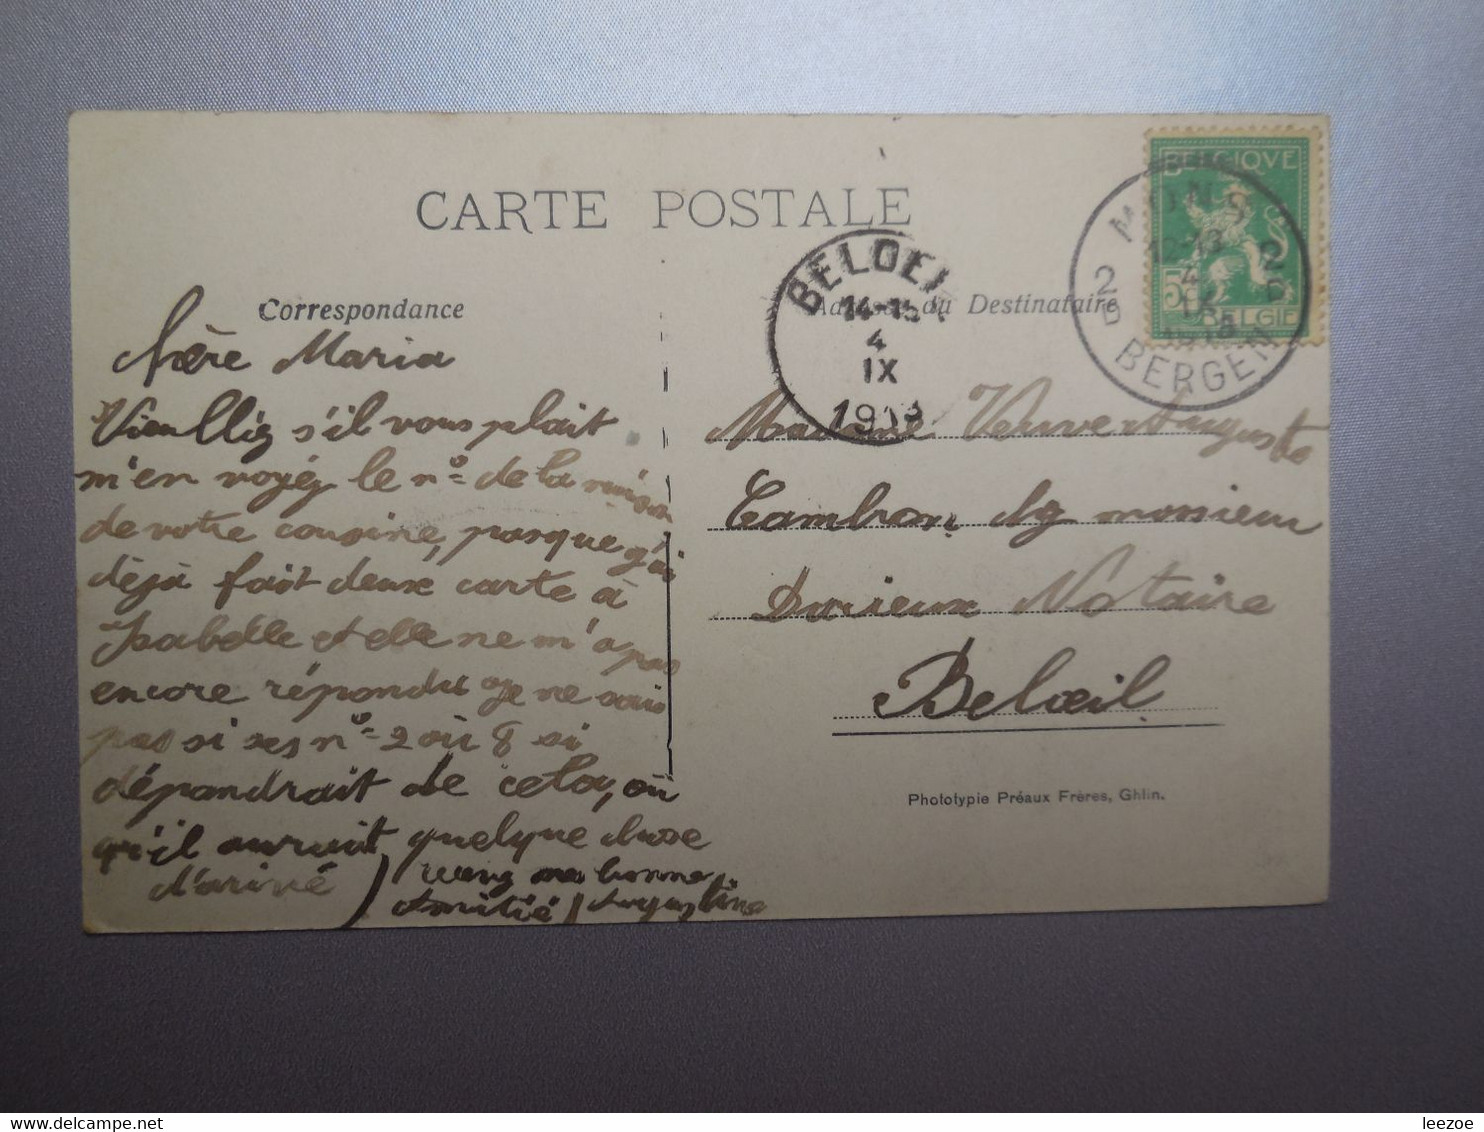 CARTE POSTALE
Correspondance
Adresse du Destinataire
BELGIQUE
5c
BELGIE
MONS
12-13
4
IX
1913
2D 2D
BERGEN
BELOEI
14-15
4
IX
1913
Chère Maria
Vieulliz s'il vous plait
m'en voyéz le nº de la maison
de votre cousine, pasque j'ai
dèjà fait deux carte à
Isabelle et elle ne m'a pas
encore répondu je ne sais
pas si ses nº 2 ou 8 si
dépandrait de cela, ou
qu'il auruit quelque chuse
d'arivé
ma bonne
Amitié Augustine
Madame Veuve Auguste
Cambron monsieur
Durieux Notaire
Belœil
Phototypie Préaux Frères, Ghlin.
leezoe